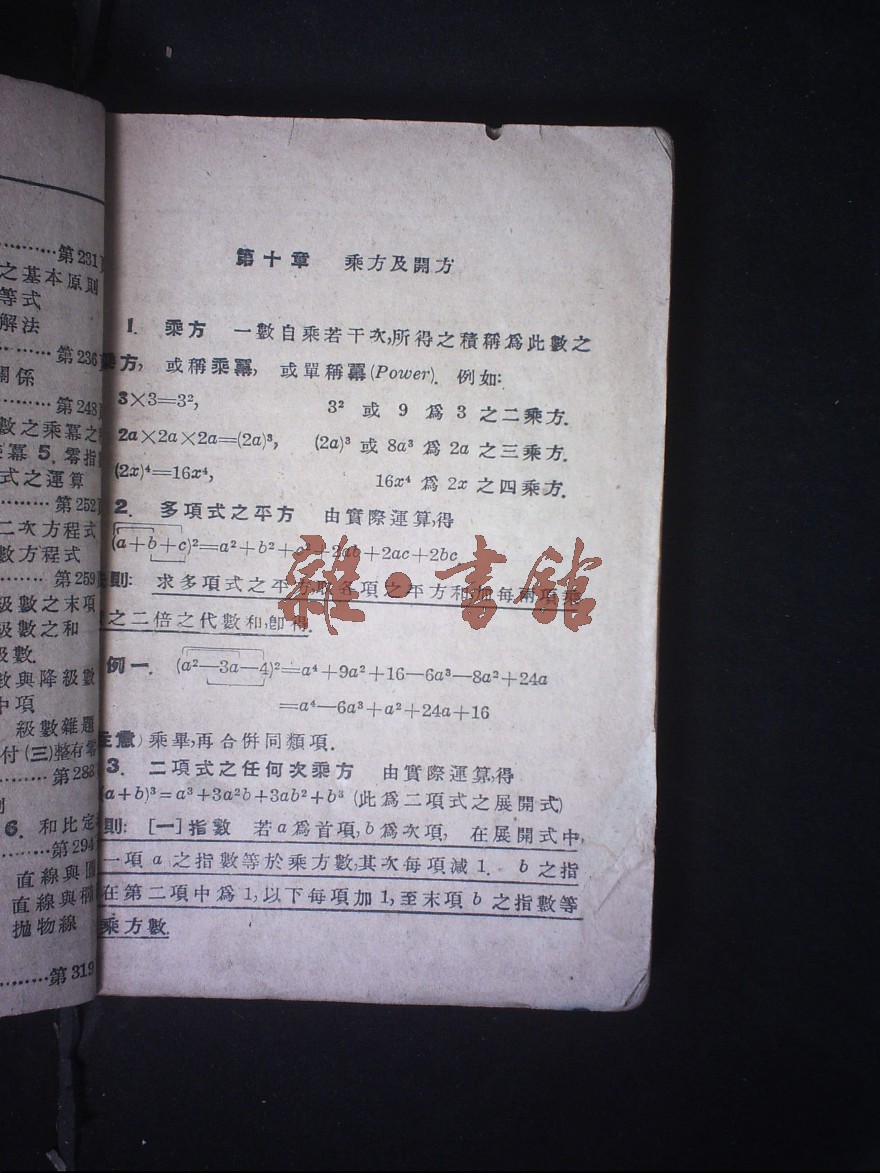 第231頁
之基本原則
等式
解法
第236
關係
第248
數之乘冪之
冪 5. 零指
式之運算
第252
二次方程式
數方程式
第259
級數之末項
級數之和
級數.
數與降級數
中項
級數雜題
付 (三)整存零
第288
6. 和比定
第294
直線與圓
直線與橢
拋物線
第319
第十章 乘方及開方
1. 乘方 一數自乘若干次,所得之積稱爲此數之
乘方, 或稱乘冪, 或單稱冪(Power). 例如:
3×3=3², 3² 或 9 爲 3 之二乘方.
2a×2a×2a=(2a)³, (2a)³ 或 8a³ 爲 2a 之三乘方.
(2x)⁴=16x⁴, 16x⁴ 爲 2x 之四乘方.
2. 多項式之平方 由實際運算,得
(a+b+c)²=a²+b²+c²+2ab+2ac+2bc
則: 求多項式之平方取各項之平方和加每兩項乘
之二倍之代數和,卽得.
例一. (a²—3a—4)²=a⁴+9a²+16—6a³—8a²+24a
=a⁴—6a³+a²+24a+16
注意) 乘畢,再合併同類項.
3. 二項式之任何次乘方 由實際運算,得
(a+b)³=a³+3a²b+3ab²+b³ (此爲二項式之展開式)
則: [一]指數 若a爲首項,b爲次項, 在展開式中,
一項 a 之指數等於乘方數,其次每項減 1. b 之指
在第二項中爲 1,以下每項加 1,至末項 b 之指數等
乘方數.
雜·書館